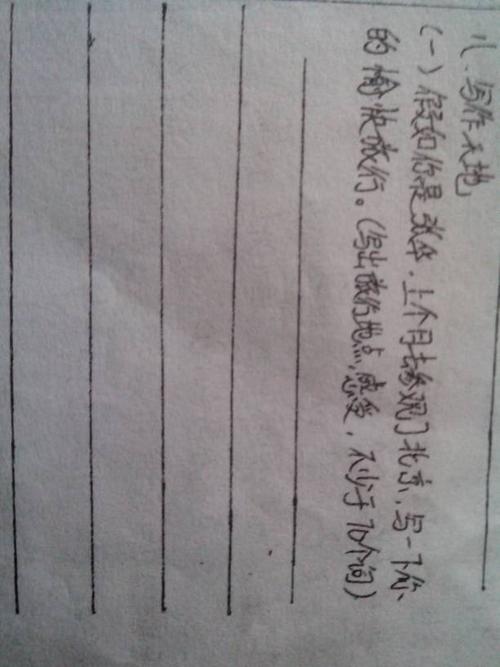 八.写作天地
(一)假如你是张华,上个月去参观了北京,写一下你
的愉快旅行。(写出旅行地点,感受,不少于70个词)